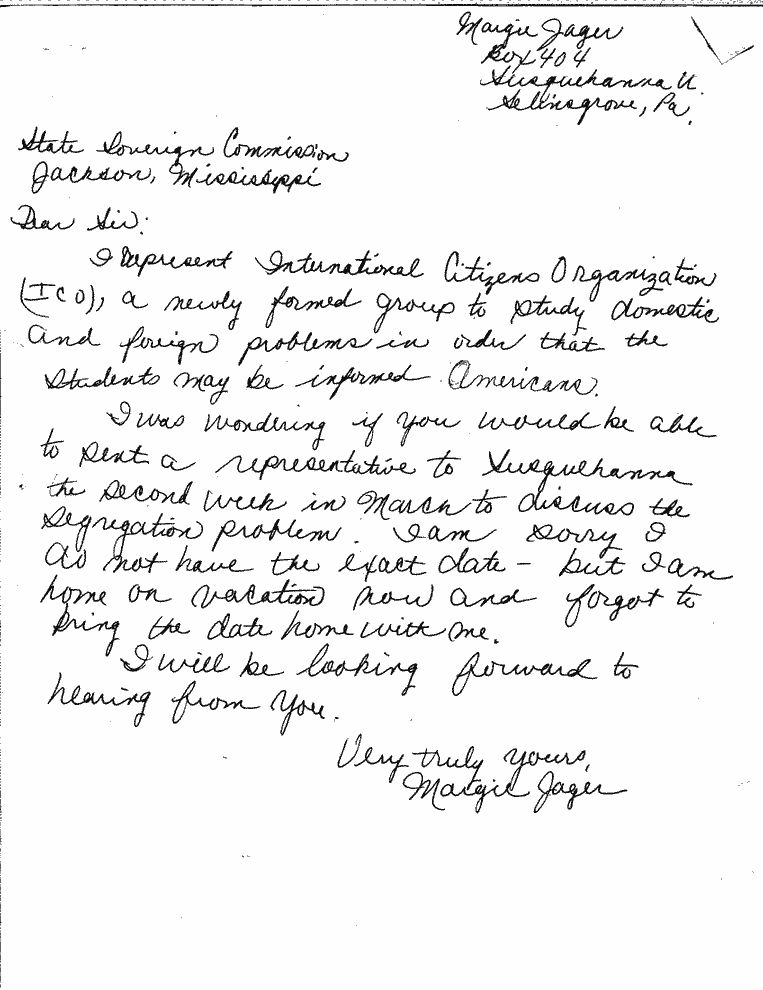 Margie Jager
Box 404
Susquehanna U.
Selinsgrove, Pa.
State Soverign Commission
Jackson, Mississippi
Dear Sir:
I represent International Citizens Organization
(ICO), a newly formed group to study domestic
and foreign problems in order that the
students may be informed Americans.
I was wondering if you would be able
to sent a representative to Susquehanna
the second week in March to discuss the
segregation problem. I am sorry I
do not have the exact date - but I am
home on vacation now and forgot to
bring the date home with me.
I will be looking forward to
hearing from you.
Very truly yours,
Margie Jager